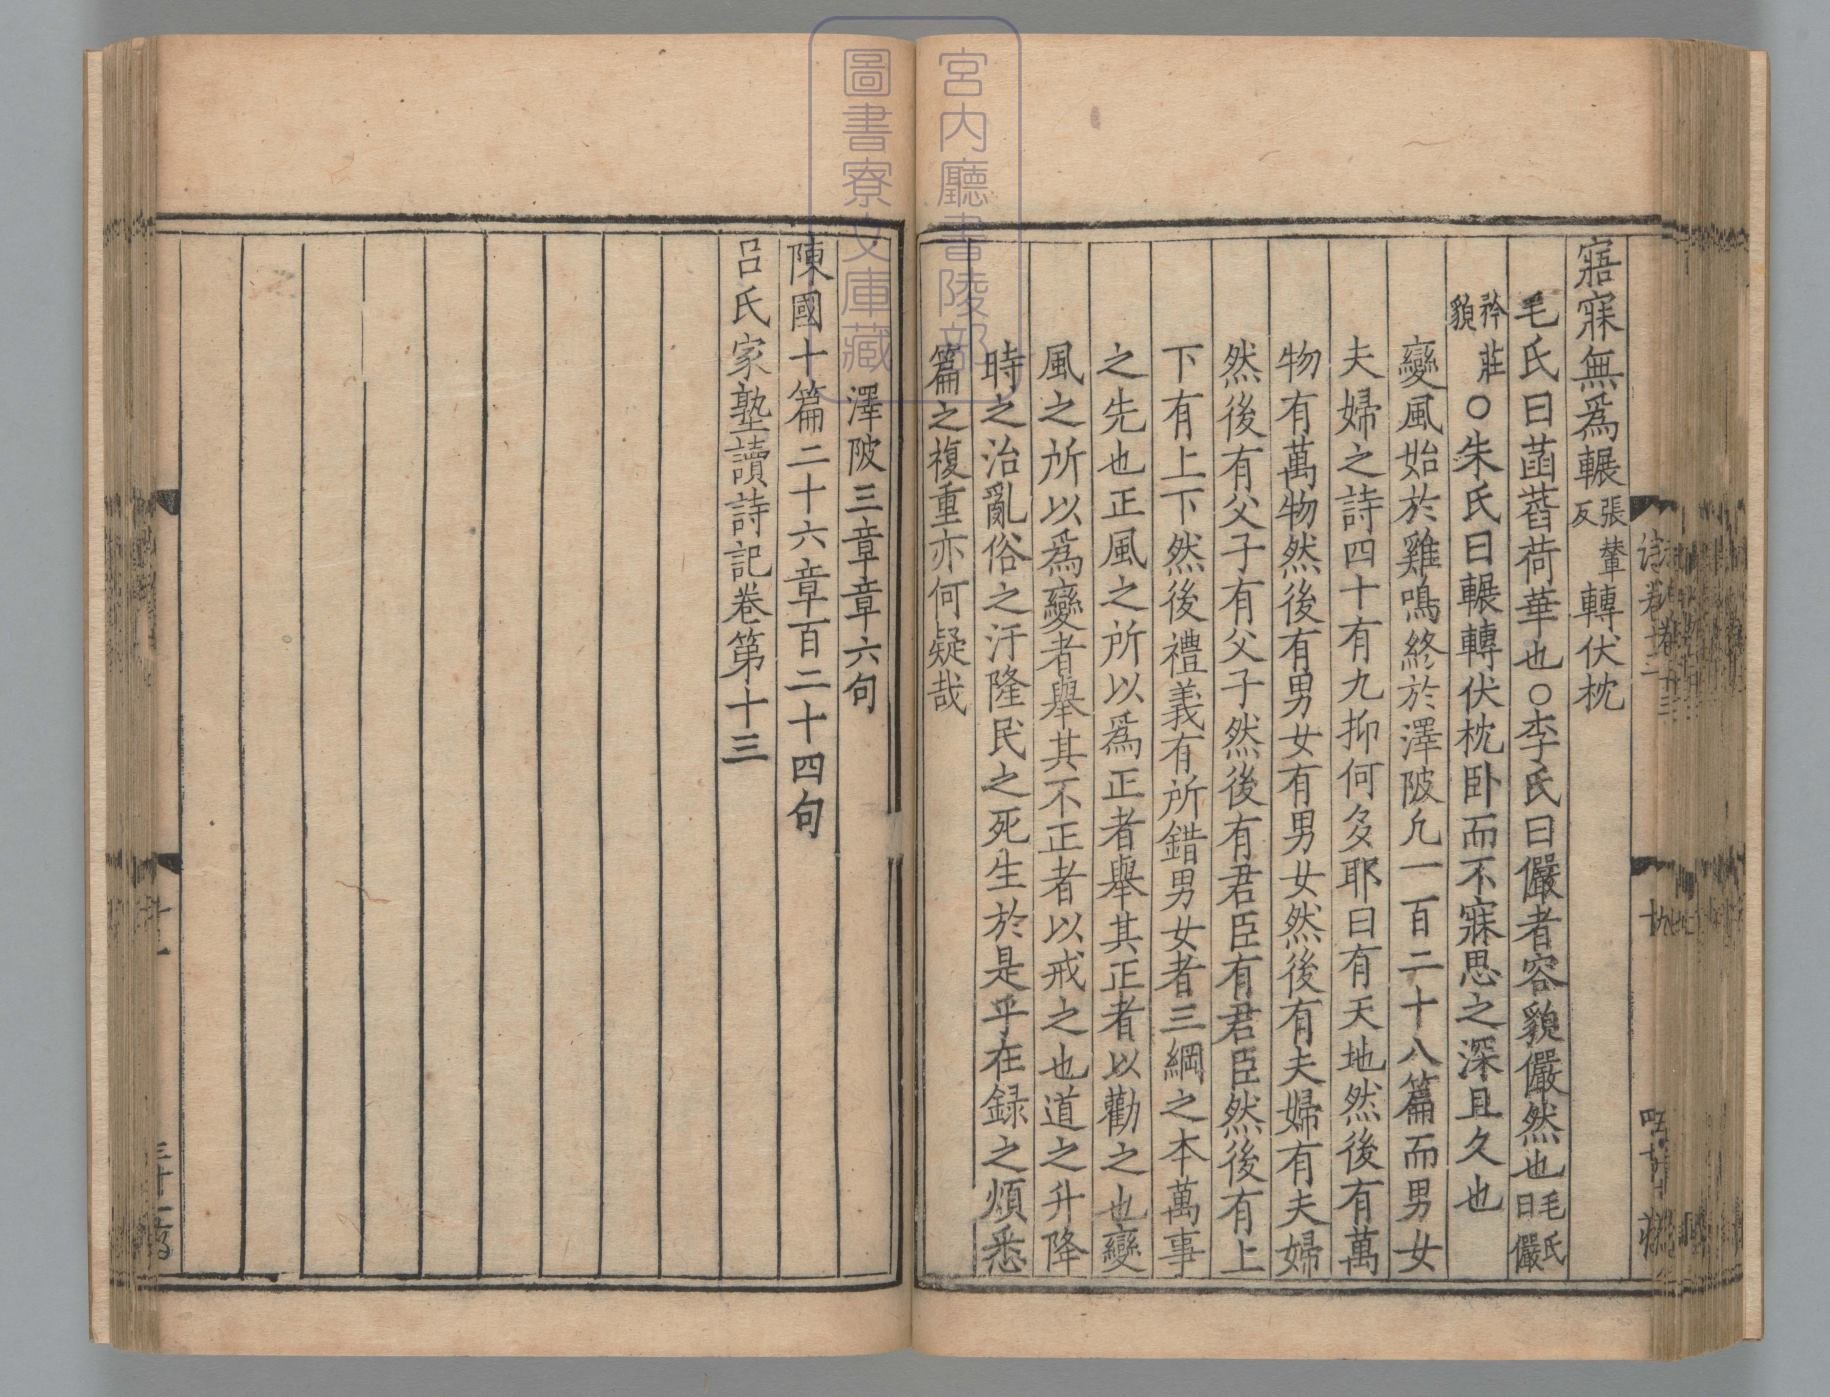 寤寐無爲輾張輦反轉伏枕
毛氏曰菡萏荷華也○李氏曰儼者容貌儼然也毛氏曰儼
矜莊貌○朱氏曰輾轉伏枕卧而不寐思之深且久也
變風始於雞鳴終於澤陂凡一百二十八篇而男女
夫婦之詩四十有九抑何多耶曰有天地然後有萬
物有萬物然後有男女有男女然後有夫婦有夫婦
然後有父子有父子然後有君臣有君臣然後有上
下有上下然後禮義有所錯男女者三綱之本萬事
之先也正風之所以爲正者舉其正者以勸之也變
風之所以爲變者舉其不正者以戒之也道之升降
時之治亂俗之汙隆民之死生於是乎在録之煩悉
篇之複重亦何疑哉
澤陂三章章六句
陳國十篇二十六章百二十四句
呂氏家塾讀詩記卷第十三
宮内廳書陵部
圖書寮文庫藏